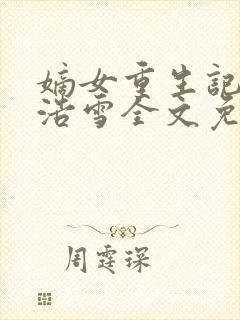 嫡女重生記
浩雪全文免
周霆琛